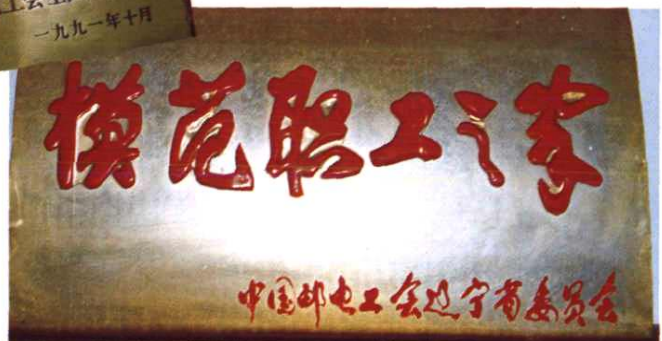 一九九一年十月
模范职工之家
中国邮电工会辽宁省委员会